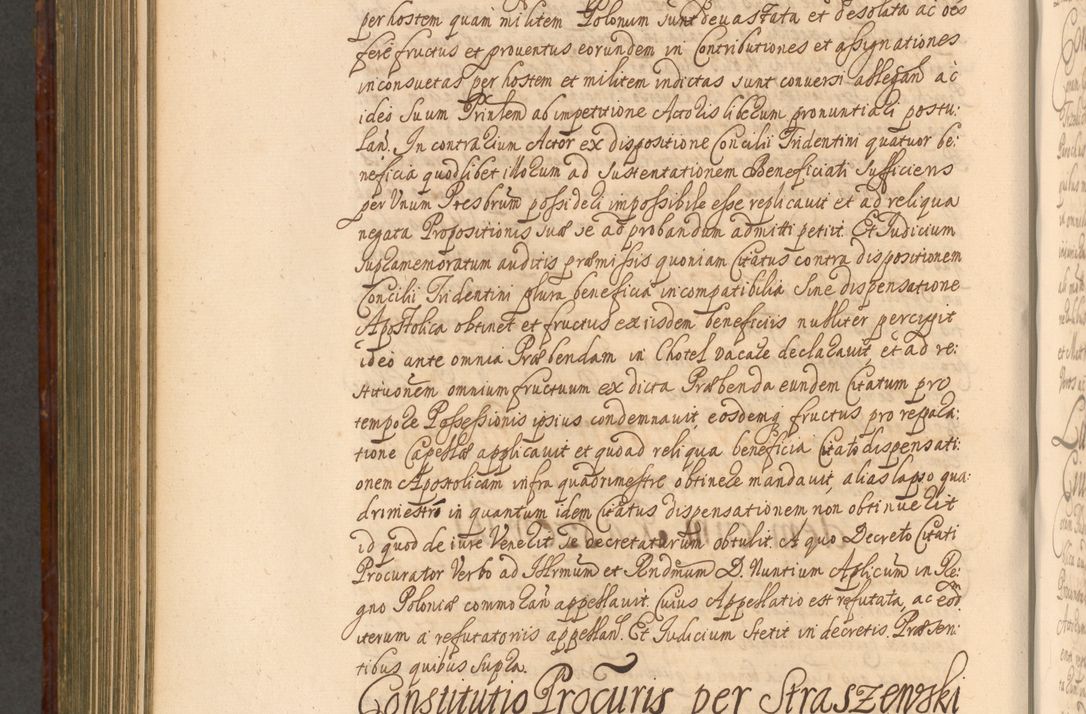 per hostem quam militem Polonum sunt devastata et desolata ac oēs
fere fructus et proventus eorundem in Contributiones et assignationes
inconsuetas per hostem et militem indictas sunt conversi allegañ ac
ideo suum Prin̄lem ab impetitione Actoris liberum pronuntiari postu:
lañ. In contrarium Actor ex dispositione Concilii Tridentini quatuor be:
neficia quodlibet illorum ad sustentationem Beneficiati sufficiens
per Unum Presbrum possideri impossibile esse replicavit et ad reliqua
negata Propositionis suæ se ad probandum admitti petiit. Et Judicium
supramemoratum auditis præmissis quoniam Citatus contra dispositionem
Concilii Tridentini plura beneficia incompatibilia sine dispensatione
Apostolica obtinet et fructus ex iisdem beneficiis nulliter percipit
ideo ante omnia Præbendam in Chotel vacare declaravit et ad re:
stitutionem omnium fructuum ex dicta Præbenda eundem Citatum pro
tempore Possessionis ipsius condemnavit, eosdemq fructus pro repara:
tione Capellæ applicavit et quoad reliqua beneficia Citato dispensati:
onem Apostolicam infra quadrimestre obtinere mandavit, alias lapso qua:
drimestro in quantum idem Citatus dispensationem non obtinuerit
id quod de iure Venerit se decretaturum obtulit. A quo Decreto Citati
Procurator Verbo ad Illrmum et Rndmum D. Nuntium Aplicum in Re:
gno Poloniæ commorañ appellavit. Cuius Appellatio est refutata, ac eod
iterum a refutatoriis appellañ. Et Judicium stetit in decretis. Præsen:
tibus quibus supra.
Constitutio Procuris per Straszewski